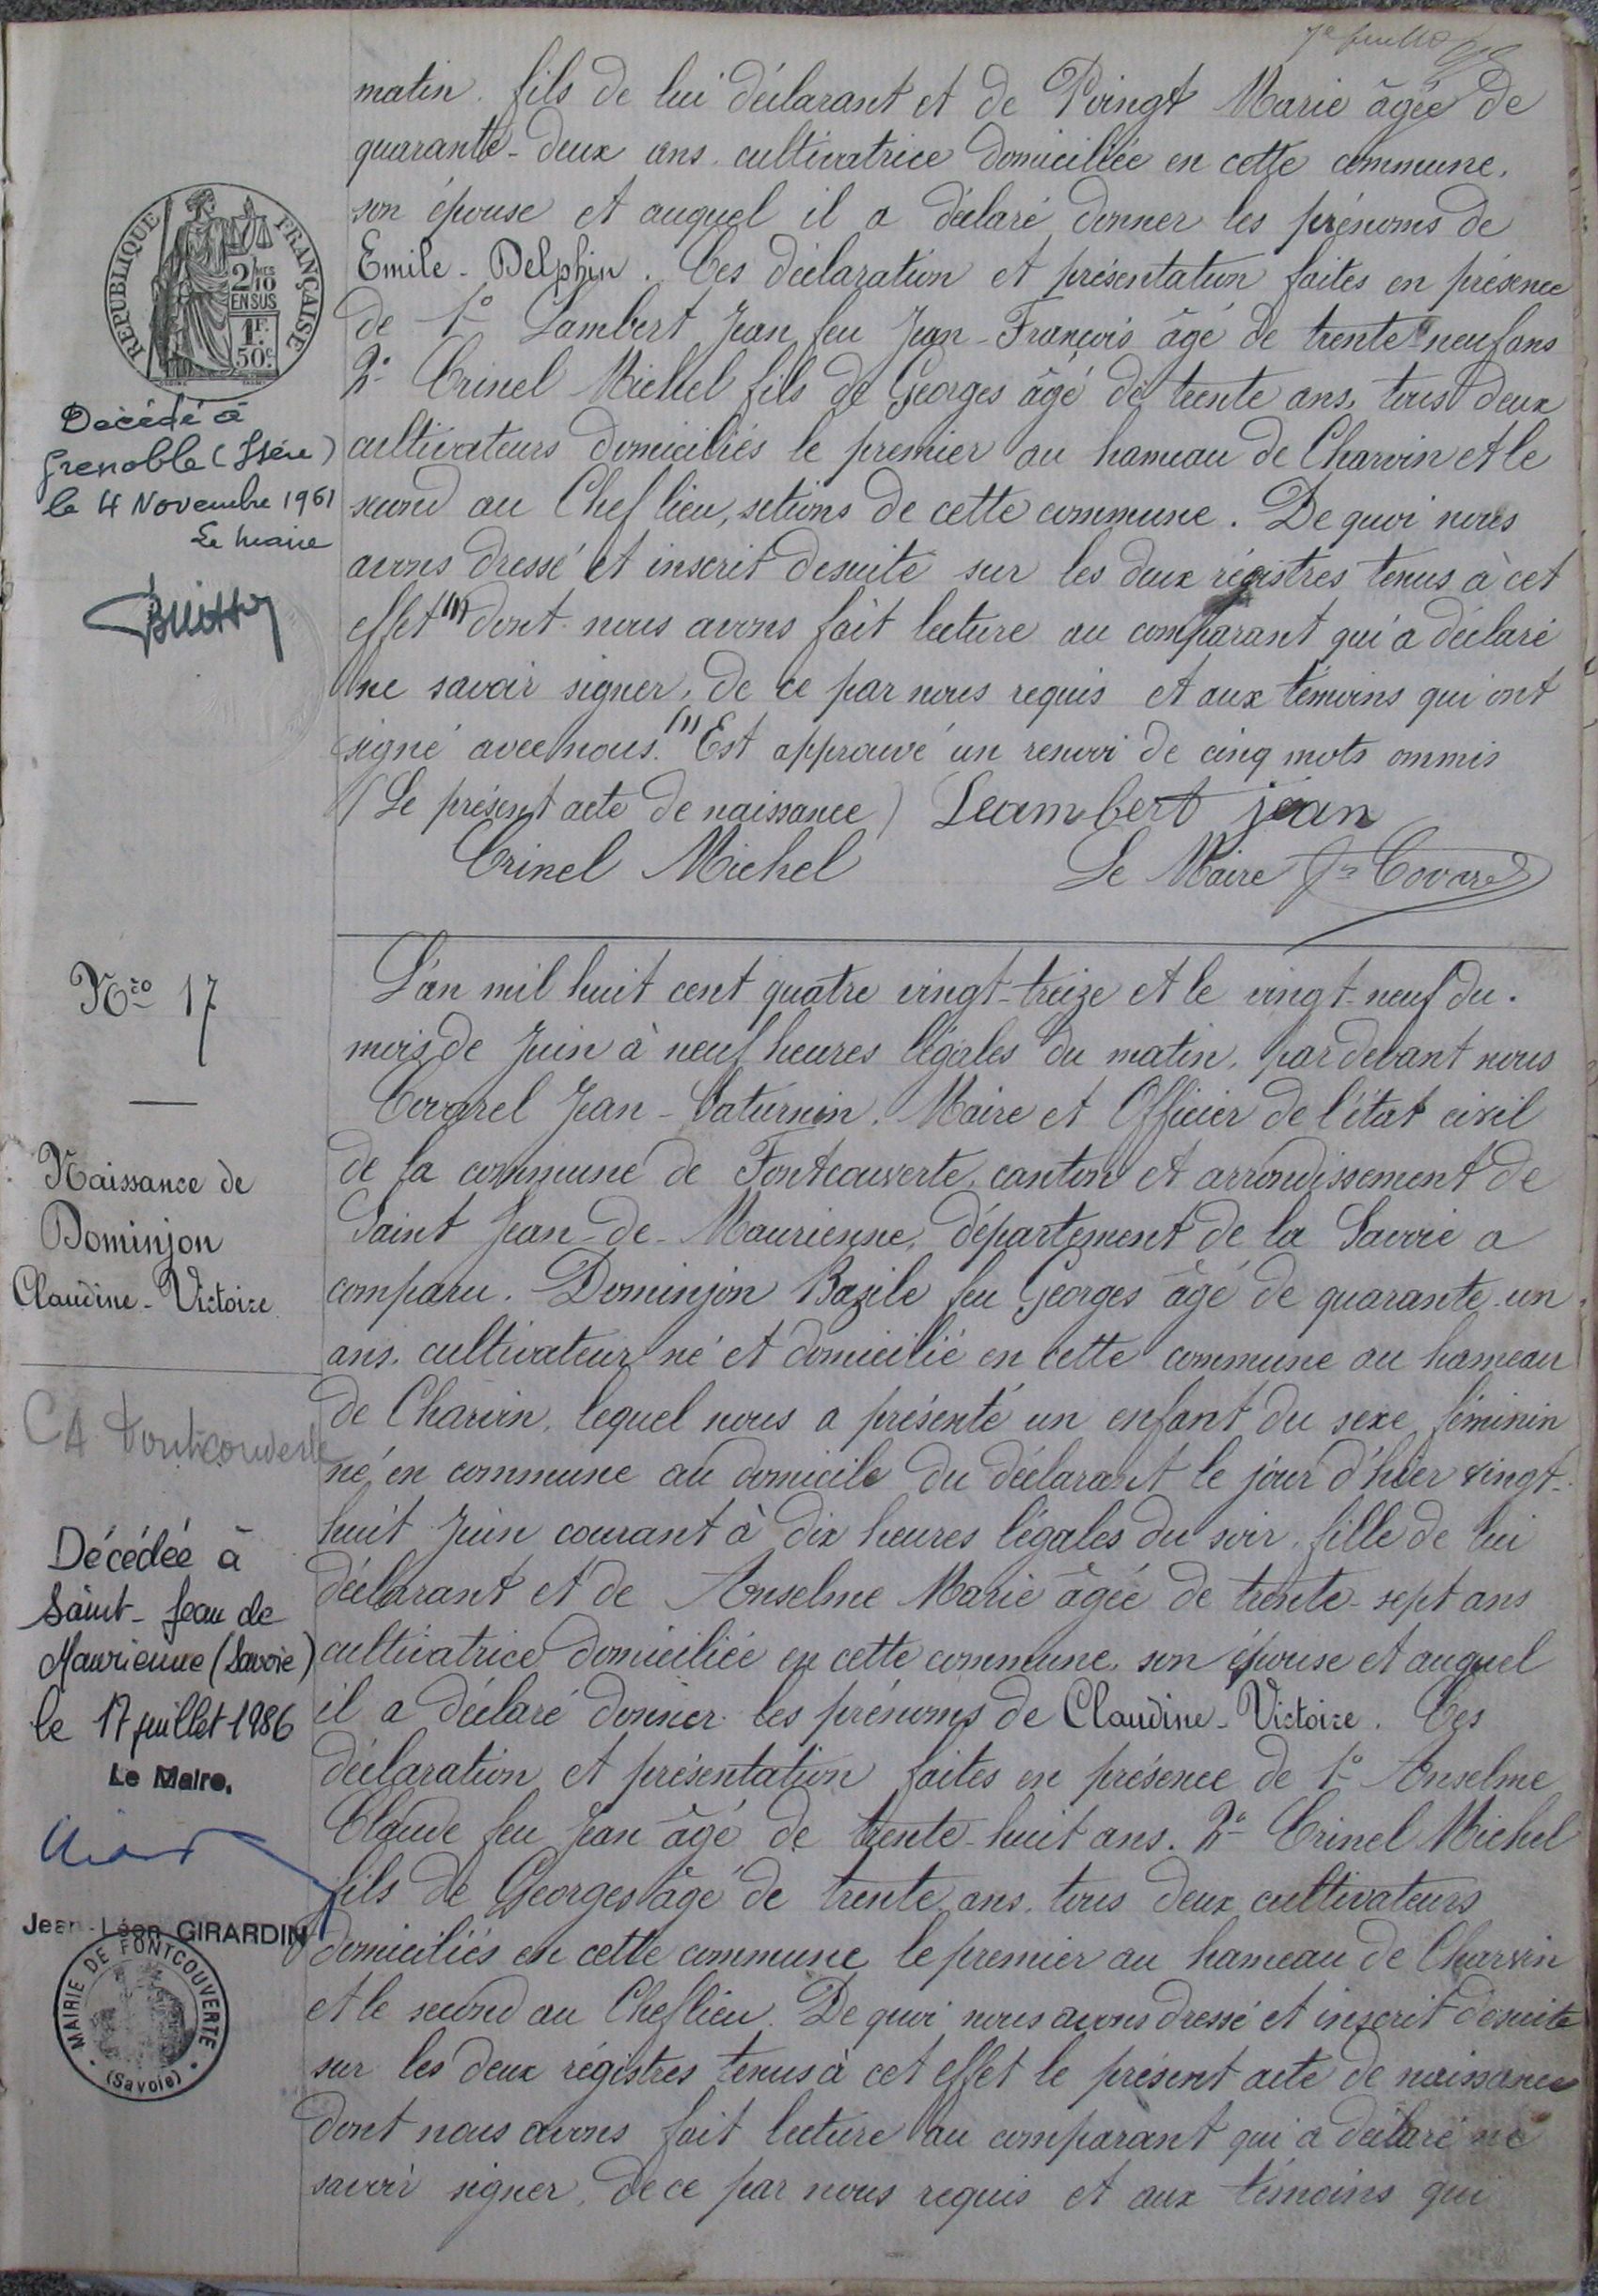 7e feuille
matin. fils de lui déclarant et de Poingt Marie âgée de
quarante-deux ans. cultivatrice domiciliée en cette commune.
son épouse et auquel il a déclaré donner les prénoms de
Emile-Delphin. Ces déclaration et présentation faites en présence
de 1° Lambert Jean feu Jean-François âgé de trente-neuf ans
2° Crinel Michel fils de Georges âgé de trente ans, tous deux
cultivateurs domiciliés le premier au hameau de Charvin et le
second au Chef lieu, setions de cette commune. De quoi nous
avons dressé et inscrit desuite sur les deux régistres tenus à cet
effet (1) dont nous avons fait lecture au comparant qui a déclaré
ne savoir signer, de ce par nous requis et aux témoins qui ont
signé avec nous. (1) Est approuvé un renvoi de cinq mots ommis
(Le présent acte de naissance) Leambert jean
Crinel Michel Le Maire Jn Covarel
REPUBLIQUE FRANÇAISE
2/10MES
EN SUS
1F.
50c.
Décédé à
Grenoble (Isère)
le 4 Novembre 1961
Le maire
Nro 17
Naissance de
Dominjon
Claudine-Victoire
C4 Fontcouverte
Décédée à
Saint-Jean de
Maurienne (Savoie)
le 17 juillet 1986
Le Maire.
Jean-Léon GIRARDIN
MAIRIE DE FONTCOUVERTE
(Savoie)
L'an mil huit cent quatre vingt-treize et le vingt-neuf du.
mois de Juin à neuf heures légales du matin, par devant nous
Covarel Jean-Saturnin. Maire et Officier de l'état civil
de la commune de Fontcouverte, canton et arrondissement de
Saint Jean-de-Maurienne, département de la Savoie a
comparu. Dominjon Bazile feu Georges âgé de quarante-un
ans. cultivateur né et domicilié en cette commune au hameau
de Charvin, lequel nous a présenté un enfant du sexe féminin
né en commune au domicile du déclarant le jour d'hier vingt-
huit Juin courant à dix heures légales du soir, fille de lui
déclarant et de Anselme Marie âgée de trente-sept ans
cultivatrice domiciliée en cette commune, son épouse et auquel
il a déclaré donner les prénoms de Claudine-Victoire. Ces
déclaration et présentation faites en présence de 1° Anselme
Claude feu Jean âgé de trente-huit ans. 2° Crinel Michel
fils de Georges âgé de trente ans. tous deux cultivateurs
domiciliés en cette commune le premier au hameau de Charvin
et le second au Cheflieu. De quoi nous avons dressé et inscrit desuite
sur les deux régistres tenus à cet effet le présent acte de naissance
dont nous avons fait lecture au comparant qui a déclaré ne
savoir signer, de ce par nous requis et aux témoins qui